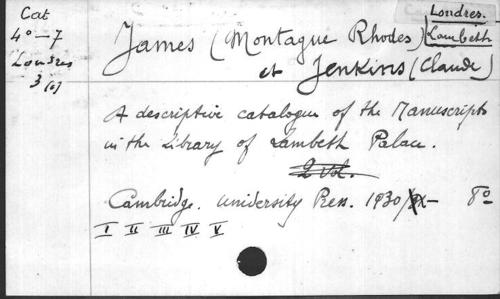 Cat
4° — 7
Londres
3 (c)
Londres.
Lambeth
James (Montague Rhodes)
et Jenkins (Claude)
A descriptive catalogue of the Manuscripts
in the Library of Lambeth Palace.
2 vol.
Cambridge. University Press. 1930/ — 8°
I II III IV V